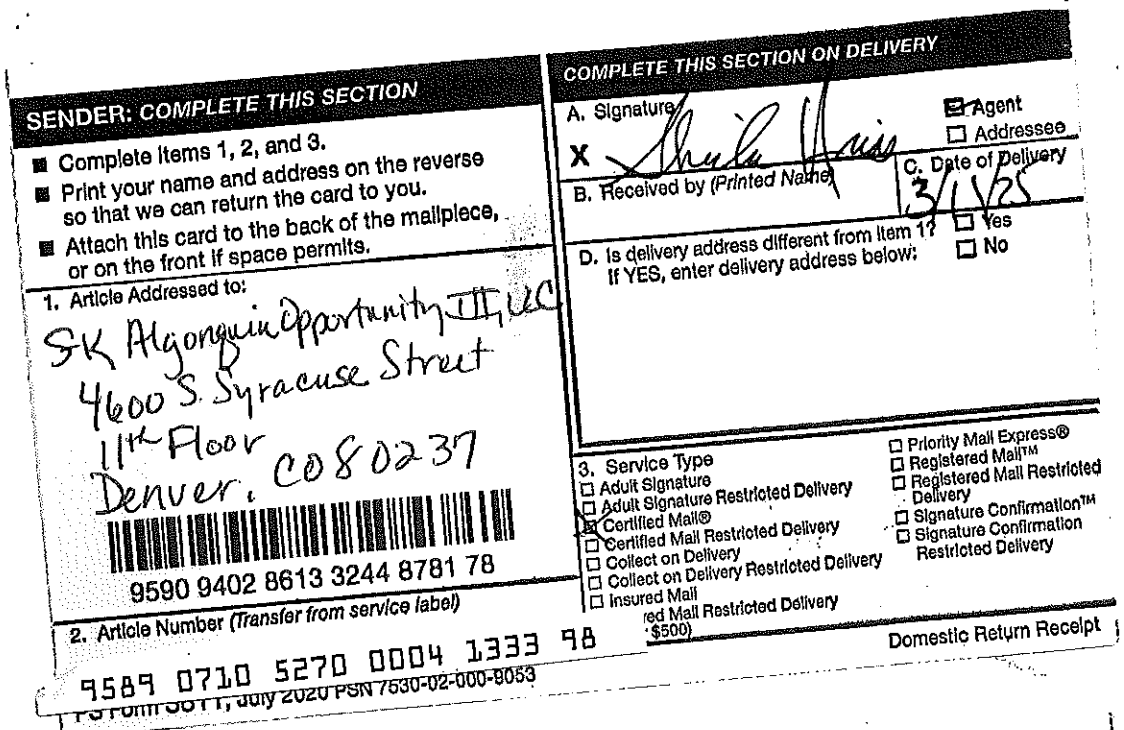 SENDER: COMPLETE THIS SECTION
■ Complete items 1, 2, and 3.
■ Print your name and address on the reverse
so that we can return the card to you.
■ Attach this card to the back of the mailpiece,
or on the front if space permits.
1. Article Addressed to:
SK Algonquin Opportunity III, LLC
4600 S. Syracuse Street
11th Floor
Denver, CO 80237
9590 9402 8613 3244 8781 78
2. Article Number (Transfer from service label)
9589 0710 5270 0004 1333 98
PS Form 3811, July 2020 PSN 7530-02-000-9053
COMPLETE THIS SECTION ON DELIVERY
A. Signature
X Sheila
☐ Agent
☐ Addressee
B. Received by (Printed Name)
C. Date of Delivery
3/11/25
D. Is delivery address different from item 1? ☐ Yes
If YES, enter delivery address below: ☐ No
3. Service Type
☐ Adult Signature
☐ Adult Signature Restricted Delivery
☐ Certified Mail®
☐ Certified Mail Restricted Delivery
☐ Collect on Delivery
☐ Collect on Delivery Restricted Delivery
☐ Insured Mail
red Mail Restricted Delivery
$500)
☐ Priority Mail Express®
☐ Registered Mail™
☐ Registered Mail Restricted
Delivery
☐ Signature Confirmation™
☐ Signature Confirmation
Restricted Delivery
Domestic Return Receipt